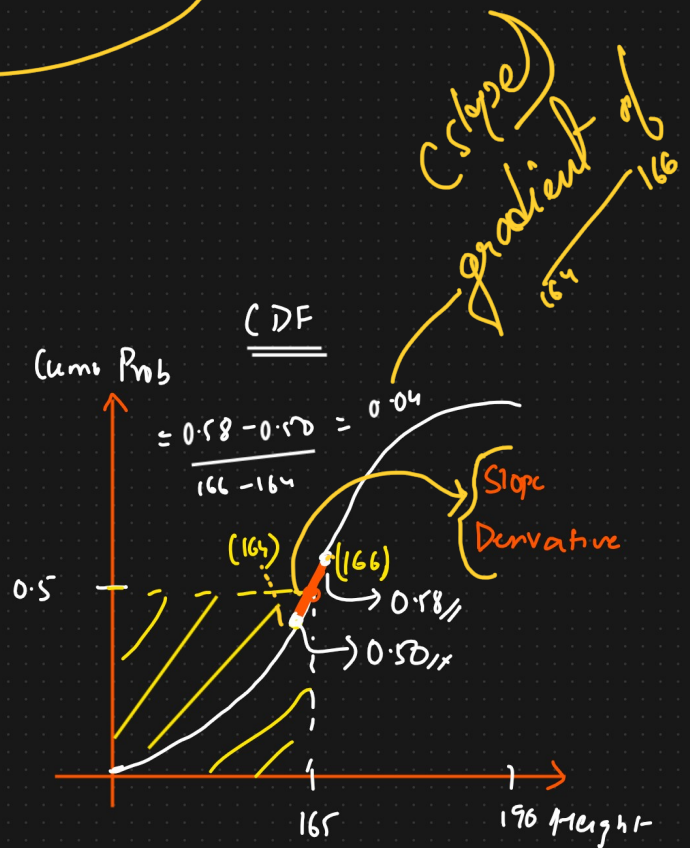 (slope)
gradient of
164
166
CDF
Cum. Prob
= 0.58 - 0.50 = 0.04
166 - 164
Slope
Derivative
(164)
(166)
0.5
0.58
0.50
165
190 Height